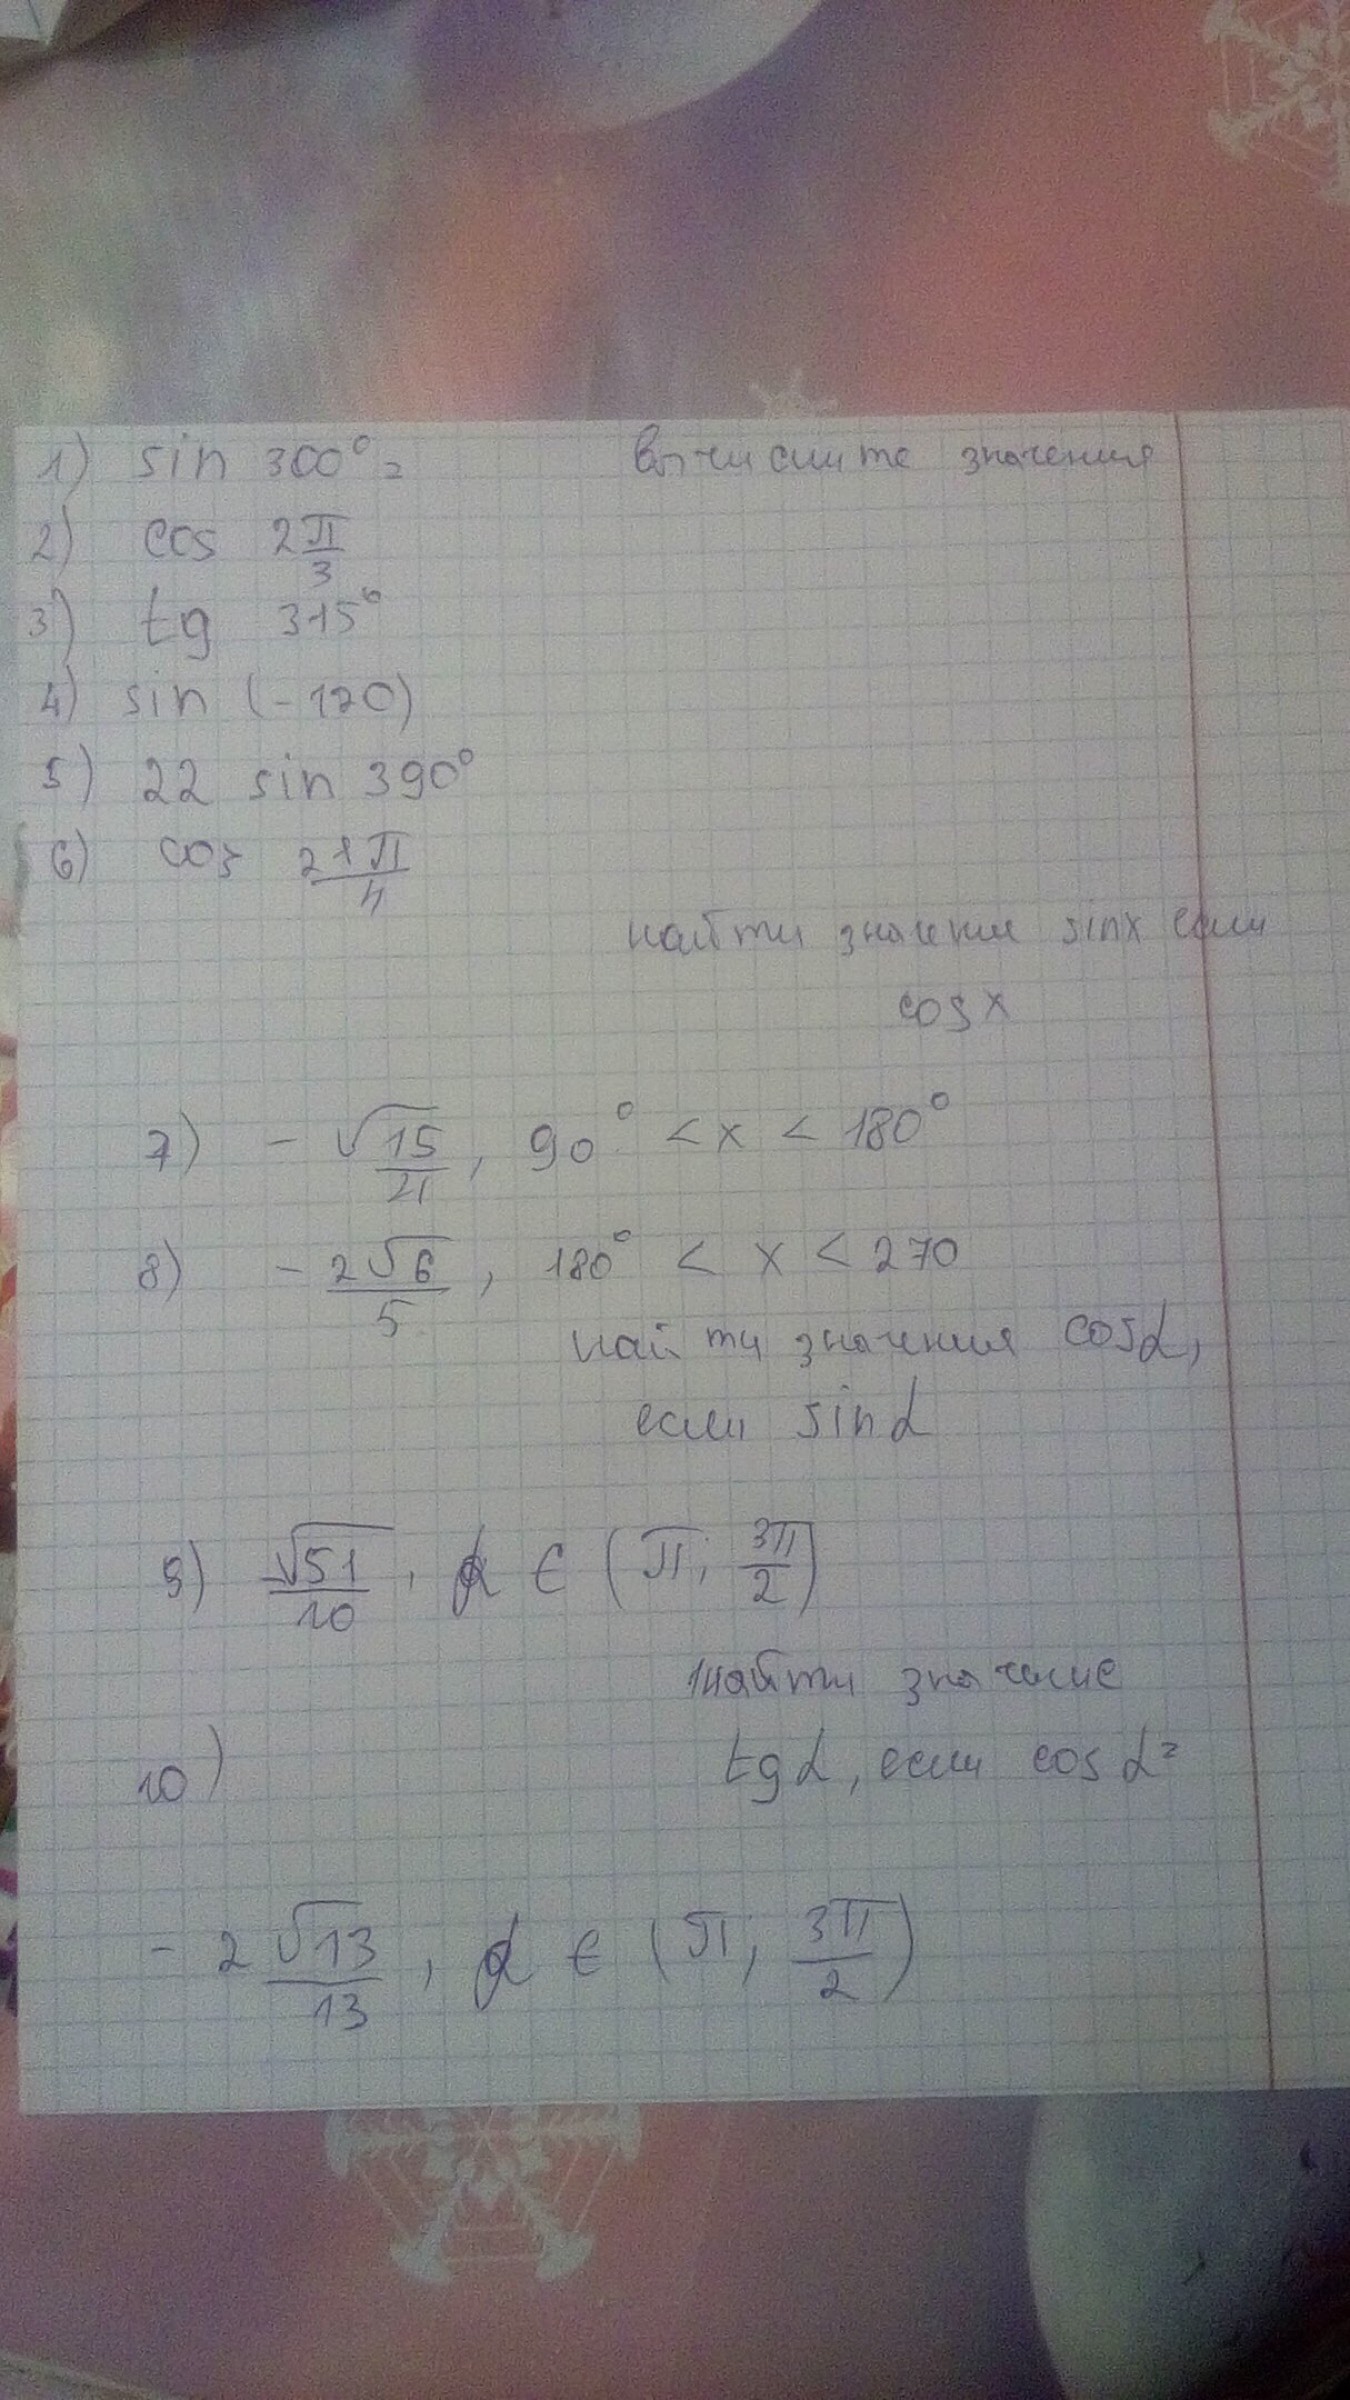 1) sin 300° = вычислите значения
2) cos 2π/3
3) tg 315°
4) sin (-120)
5) 22 sin 390°
6) cos 21π/4
найти значения sinx если
cos x
7) - √15/4, 90° < x < 180°
8) - 2√6/5, 180° < x < 270
найти значения cosα,
если sinα
9) √51/10, α ∈ (π; 3π/2)
найти значение
10) tgα, если cosα =
- 2√13/13, α ∈ (π; 3π/2)